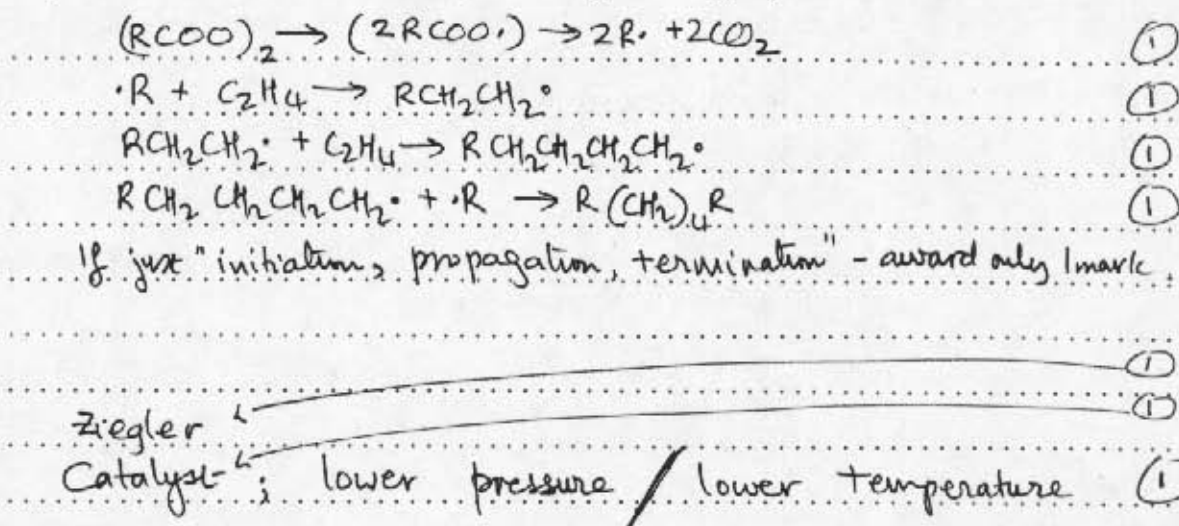 (RCOO)₂ → (2RCOO·) → 2R· + 2CO₂ ①
·R + C₂H₄ → RCH₂CH₂· ①
RCH₂CH₂· + C₂H₄ → RCH₂CH₂CH₂CH₂· ①
RCH₂ CH₂CH₂CH₂· + ·R → R(CH₂)₄R ①
If just "initiation, propagation, termination" - award only 1 mark.
①
①
Ziegler
Catalyst ; lower pressure / lower temperature ①